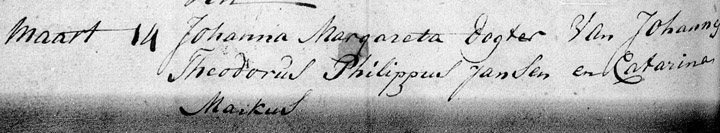 Maart 14 Johanna Margareta dogter Van Johannis
Theodorus Philippus Jansen en Catarina
Markus